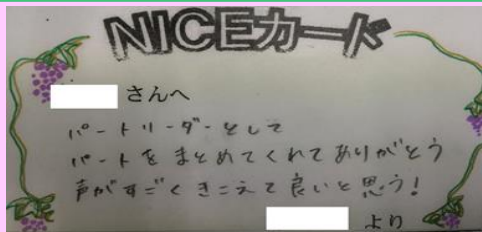 NICEカード
さんへ
パートリーダーとして
パートをまとめてくれてありがとう
声がすごくきこえて良いと思う!
より